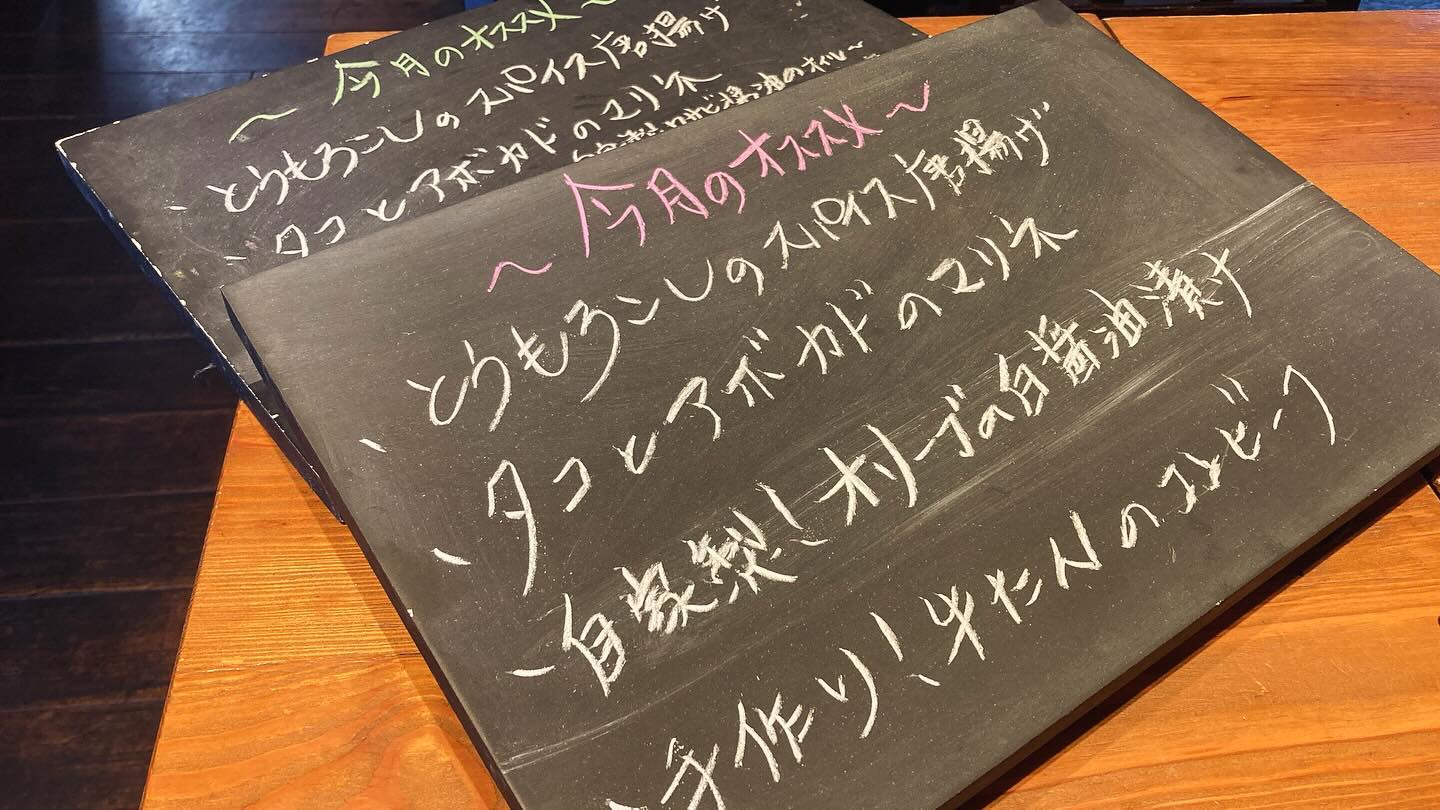 ～今月のオススメ～
、とうもろこしのスパイス唐揚げ
、タコとアボカドのマリネ
醤油のオイル～
～今月のオススメ～
、とうもろこしのスパイス唐揚げ
、タコとアボカドのマリネ
、自家製！オリーブの白醤油漬け
、手作り！牛たんのコンビーフ